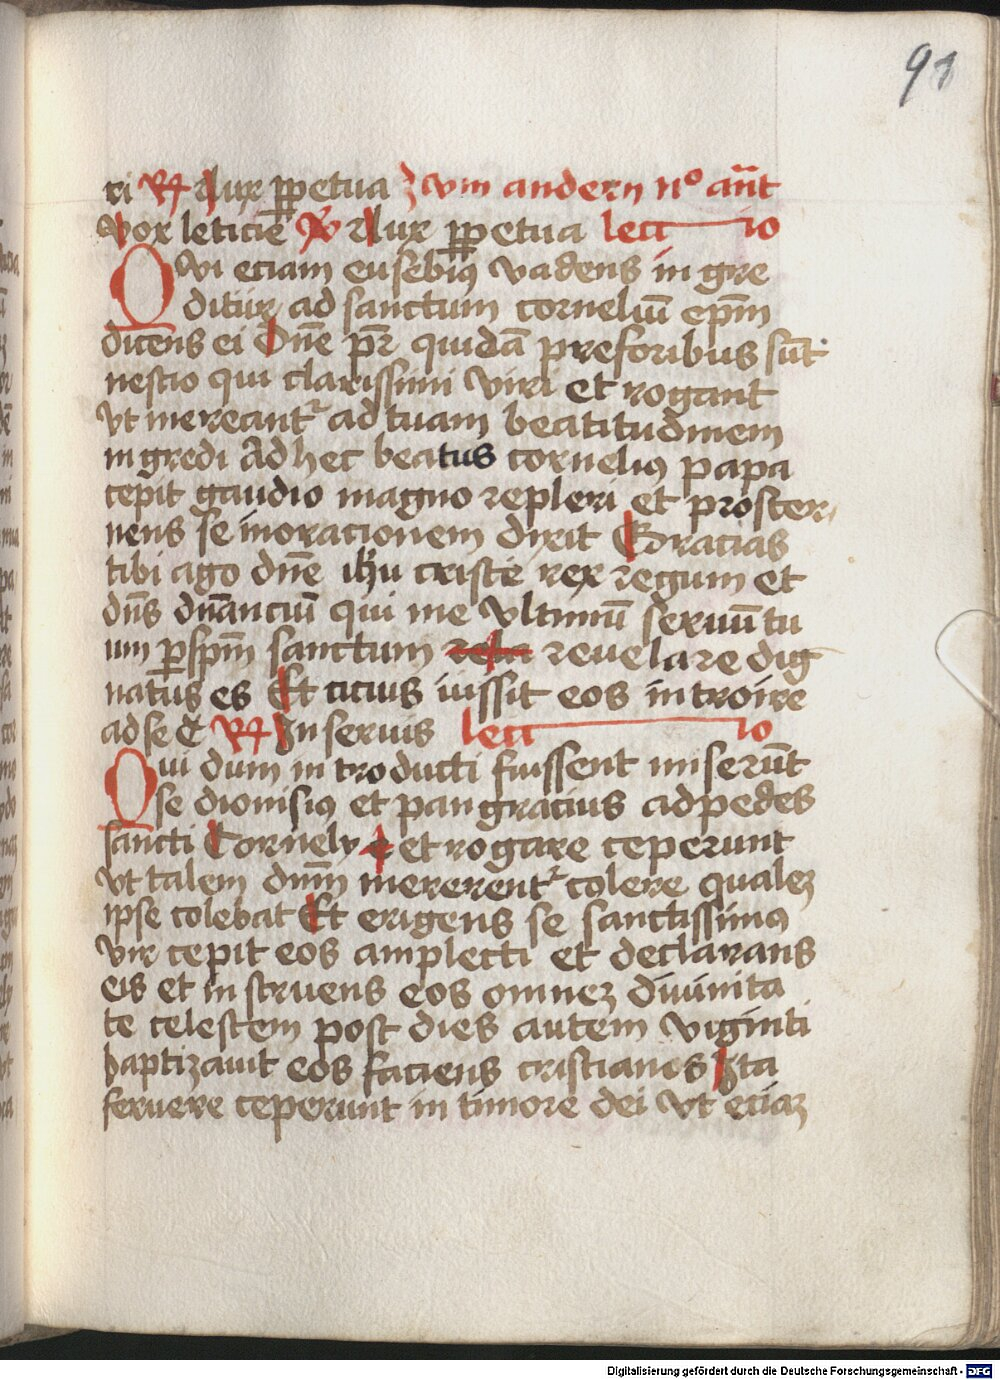 91
ri R Lux ppetua zcum andern n° ant
Vox leticie V Lux ppetua lectio
Qvi eciam eusebius vadens in gre
ditur ad sanctum corneliū epm̄
dicens ei Dn̄e pr̄ quidā preforibus sūt
nescio qui clarissimi viri et rogant
vt mereant᷑ ad tuam beatitudinem
in gredi Ad hec beatus cornelius papa
cepit gaudio magno repleri et proster
nens se inoracionem dixit Gracias
tibi ago dn̄e ihu criste rex regum et
dn̄s dn̄anciū qui me vltimū seruū tu
um p spm̄ sanctum reuelare dig
natus es Et cicius iussit eos introire
ad se R In seruis lectio
Qui dum in troducti fuissent miserūt
se dionisius et pangracius adpedes
sancti Cornely et rogare ceperunt
vt talem dnm̄ mererent᷑ colere qualez
ipse colebat Et erigens se sanctissimus
vir cepit eos amplecti et declarans
eis et in struens eos omnez diuinita
te celestem post dies autem viginti
baptizauit eos faciens cristianos Ita
feruere ceperunt in timore dei vt eciaz
Digitalisierung gefördert durch die Deutsche Forschungsgemeinschaft - DFG